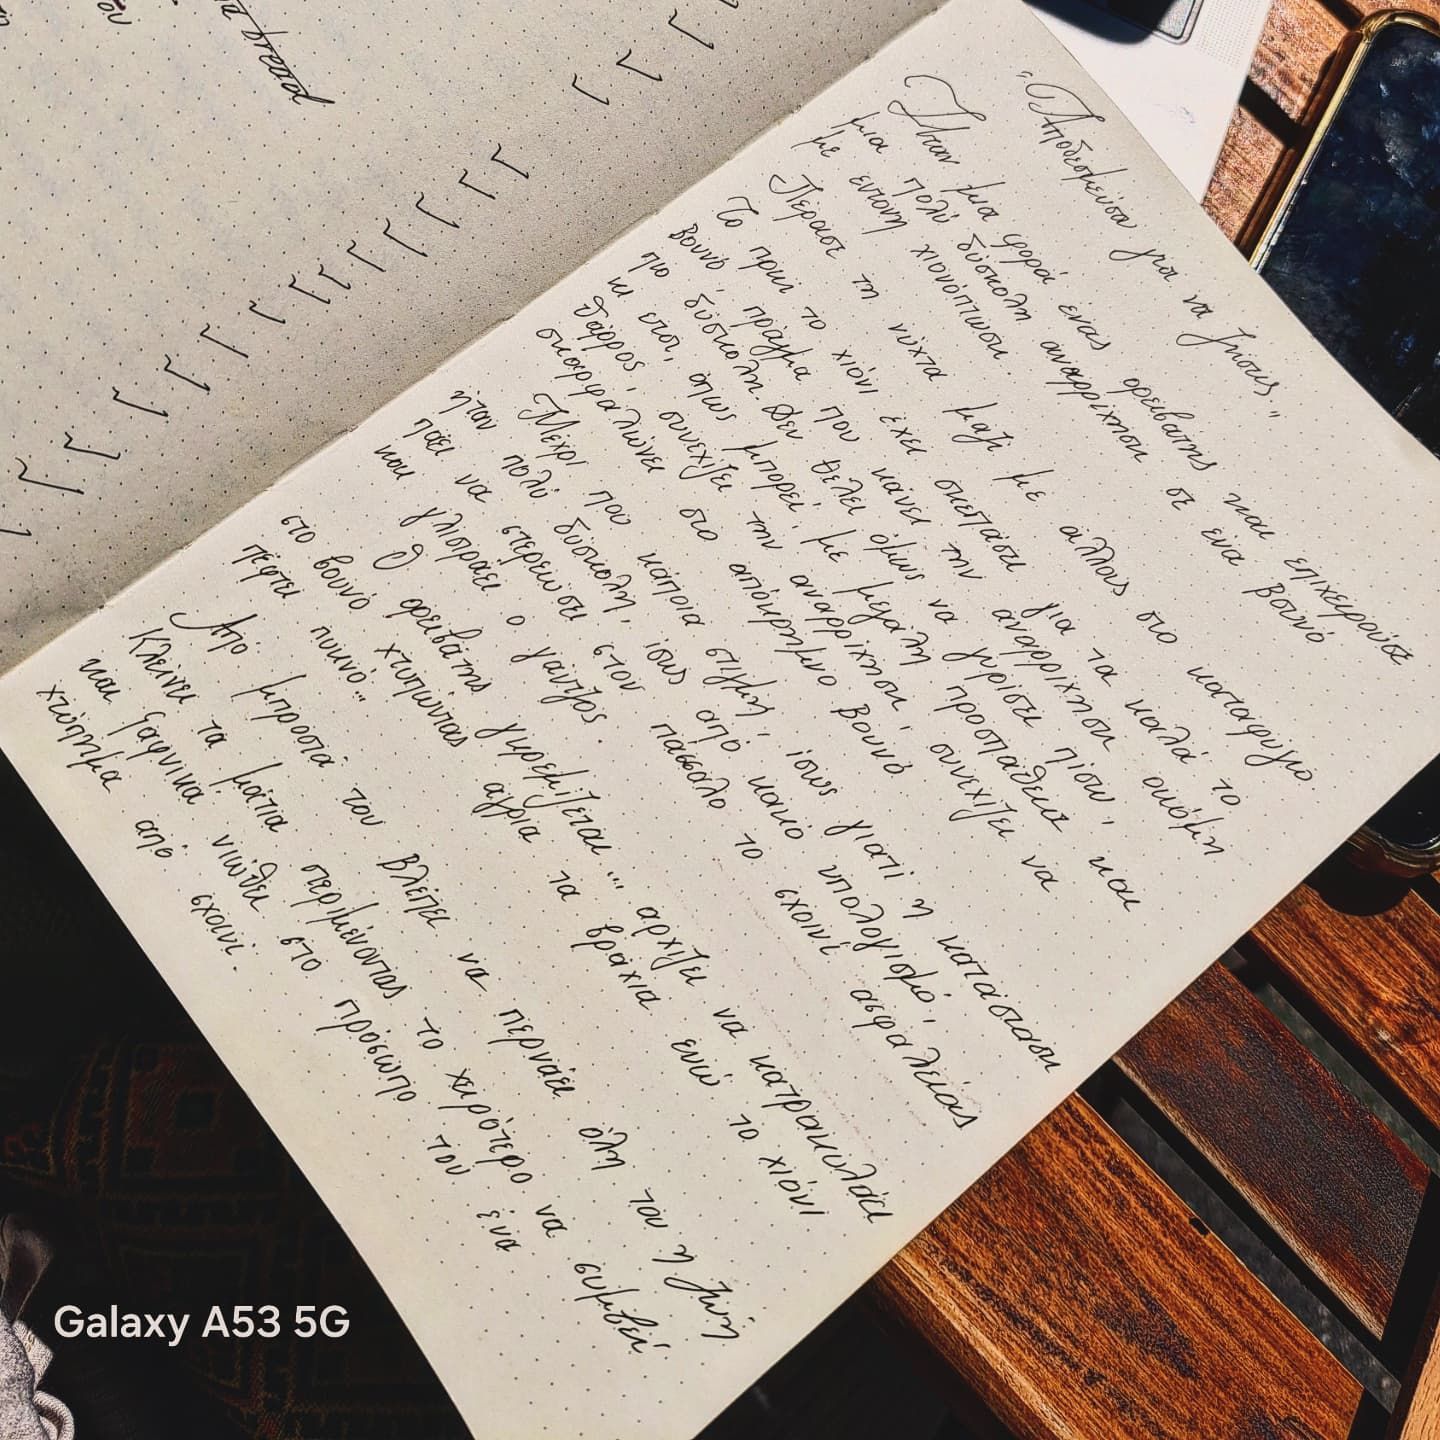 bread
"Αποδεσμεύσου για να ζήσεις"
Ήταν μια φορά ένας ορειβάτης και επιχειρούσε
μια πολύ δύσκολη αναρρίχηση σε ένα βουνό
με έντονη χιονόπτωση.
Πέρασε τη νύχτα μαζί με άλλους στο καταφύγιο.
Το πρωί το χιόνι έχει σκεπάσει για τα καλά το
βουνό, πράγμα που κάνει την αναρρίχηση ακόμη
πιο δύσκολη. Δεν θέλει όμως να γυρίσει πίσω,
κι έτσι, όπως μπορεί, με μεγάλη προσπάθεια και
θάρρος, συνεχίζει την αναρρίχηση, συνεχίζει να
σκαρφαλώνει στο απόκρημνο βουνό.
Μέχρι που κάποια στιγμή, ίσως γιατί η κατάσταση
ήταν πολύ δύσκολη, ίσως από κακό υπολογισμό,
πάει να στερεώσει στον πάσσαλο το σχοινί ασφαλείας
και γλιστράει ο γάντζος.
Ο ορειβάτης γκρεμίζεται... αρχίζει να κατρακυλάει
στο βουνό χτυπώντας άγρια τα βράχια ενώ το χιόνι
πέφτει πυκνό...
Από μπροστά του βλέπει να περνάει όλη του η ζωή
κλείνει τα μάτια περιμένοντας το χειρότερο να συμβεί
και ξαφνικά νιώθει στο πρόσωπο του ένα
χτύπημα από σχοινί.
Galaxy A53 5G